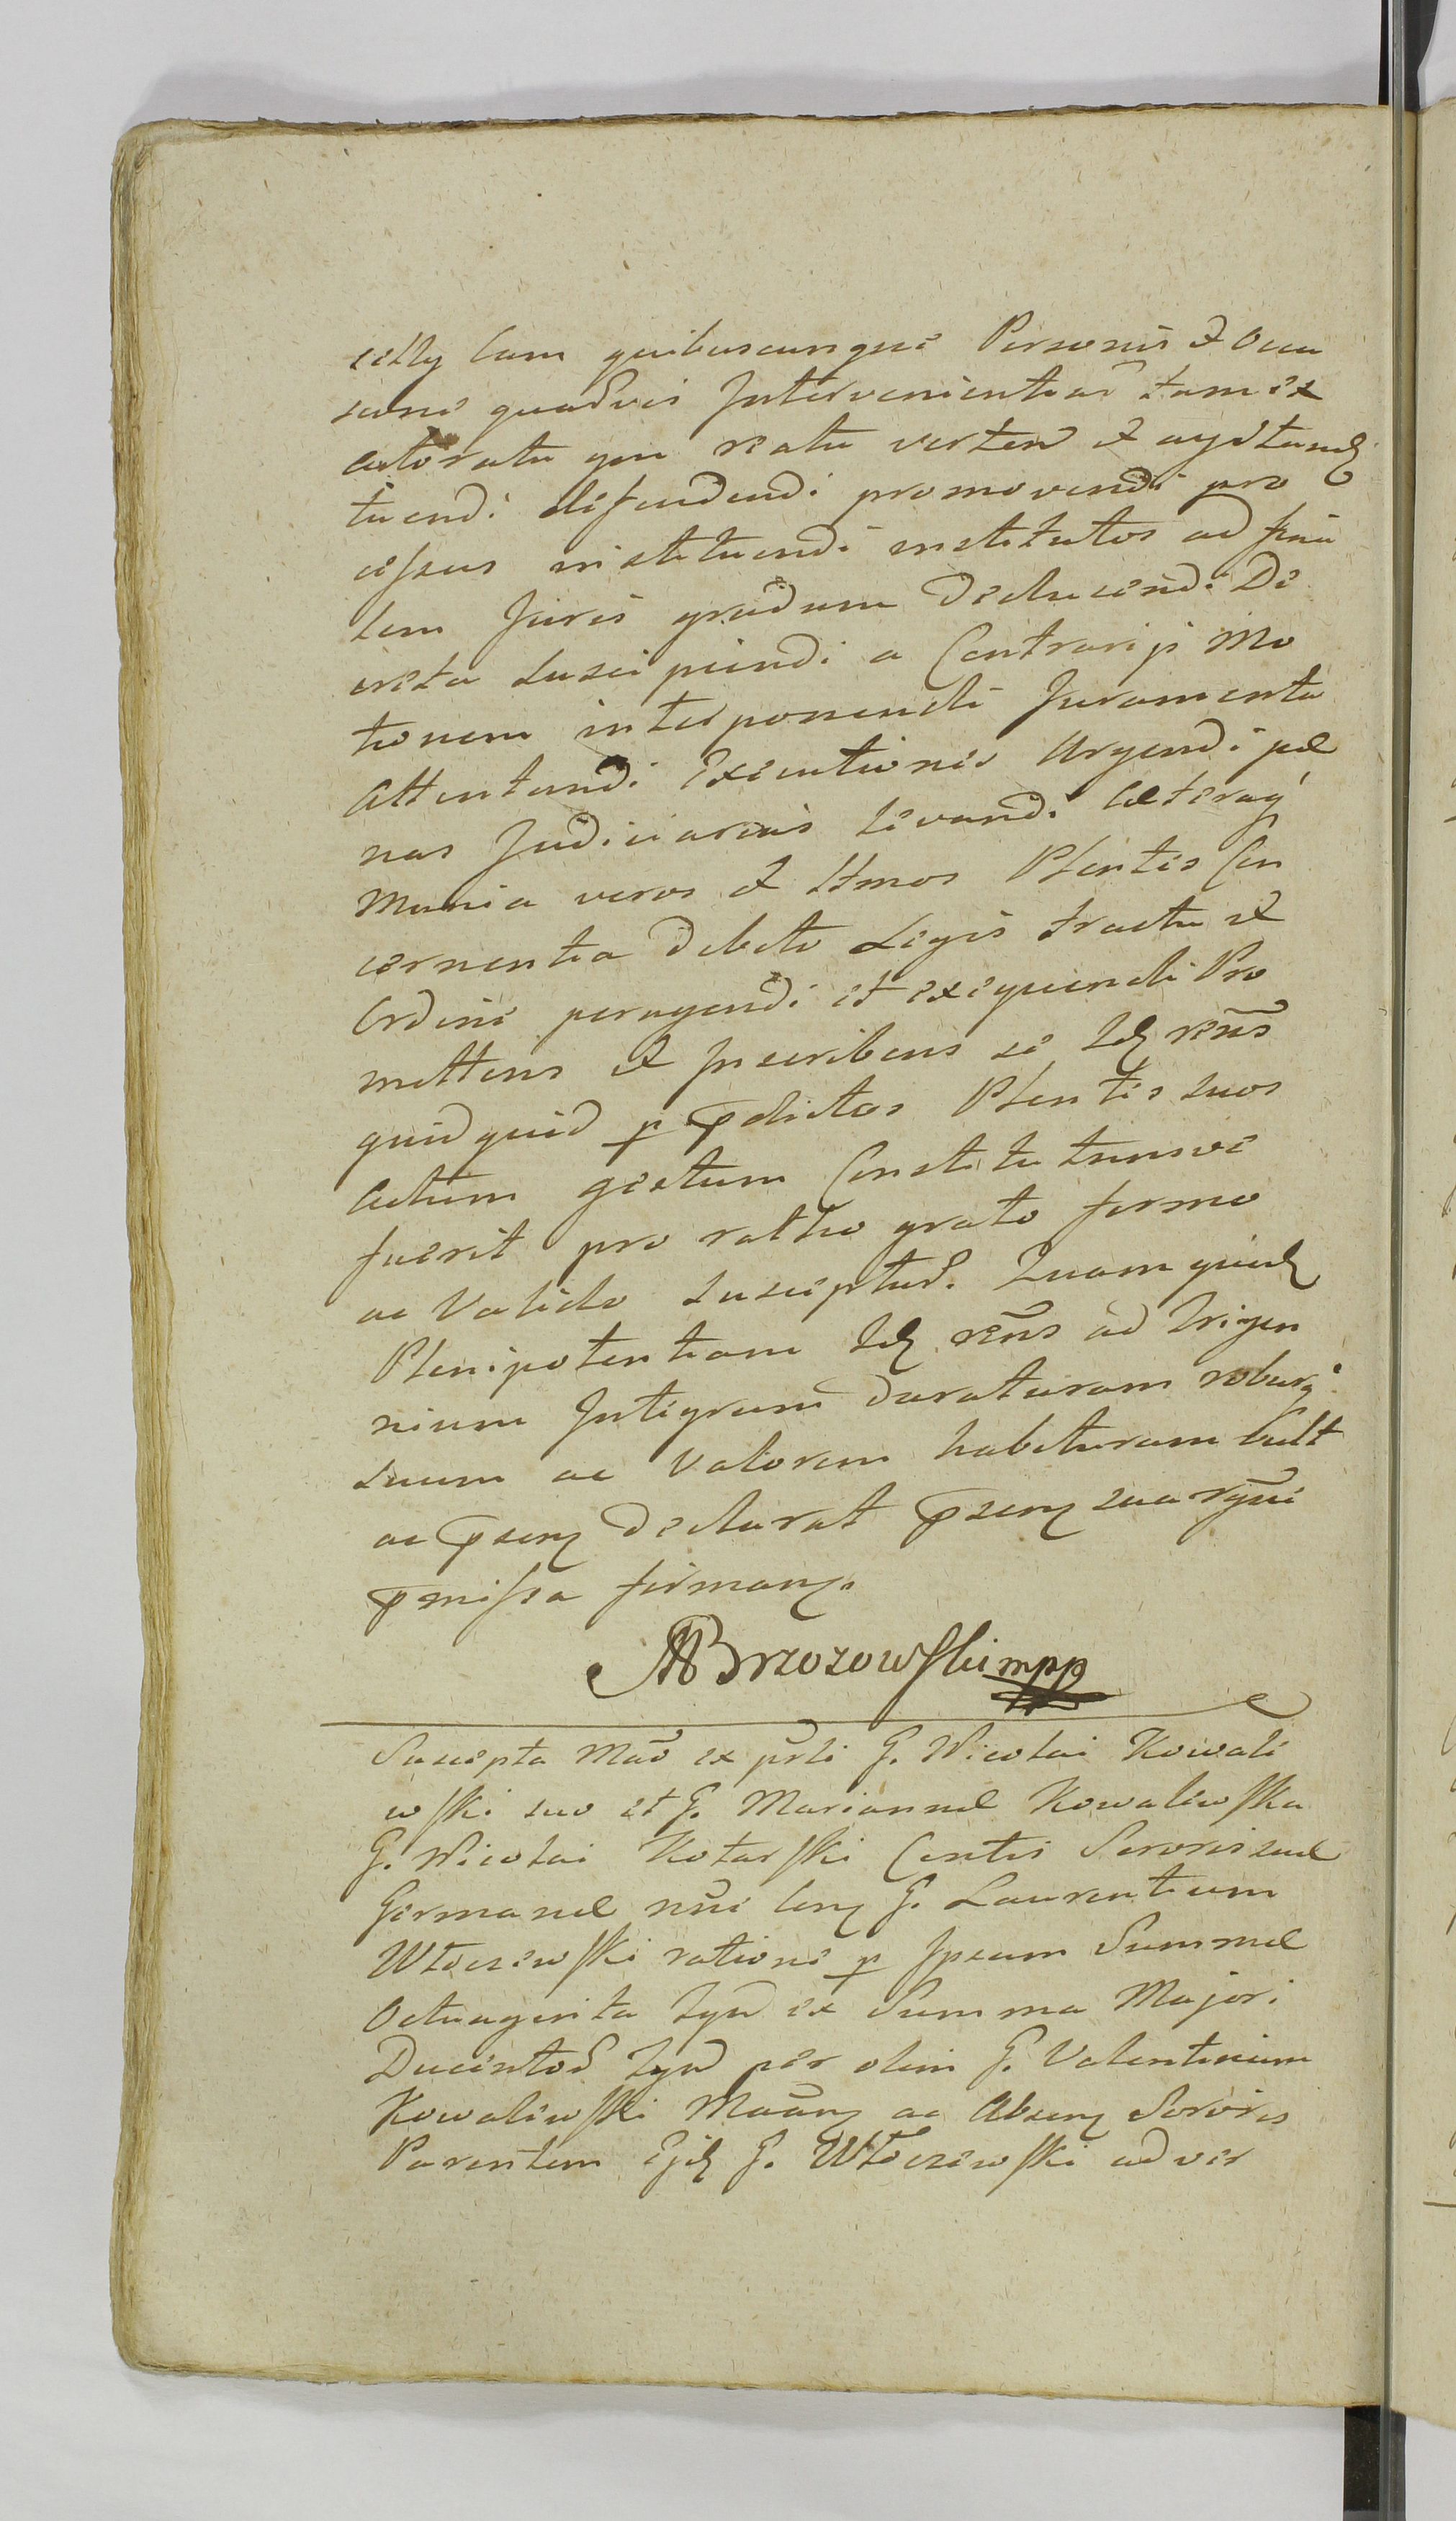 cesso cum quibuscunque Personis et Occa
sione quadvis Intervenientias tam ex
actoratu qm reatu verten et agitand
tuendi defendendi promovendi pro
cessus instituendi institutos ad fina
lem Juris gradum deducendi De
creta suscipiendi a Contrarijs Mo
tionem interponendi Juramenta
Attentandi Executiones Urgendi pæ
nas Judiciarias Levandi Cæteraq
Munia veros et Ltmos Plentes Con
cernentia debito Legis tractu et
Ordine peragendi et exequendi Pro
mittens et Inscribens se Id rens
quidquid p prdictos Plentes suos
Actum gestum Constitutumve
fuerit pro ratho grato firmo
ac Valido suscepturu. Quam quid
Plenipotentiam Id rens ad Trigen
nium Integrum duraturam roburq
suum ac Valorem habituram vult
ac psen declarat psen sua manu
pmissa firman.
MBrzozowski mpp
Suscepta Mao ex prti G. Nicolai Kowale
wski suo et G. Mariannæ Kowalewska
G. Nicolai Kotarski Contis Sororis suæ
Germanæ nne con G. Laurentium
Włoczewski ratione p Ipsum Summæ
Octuaginta Tyn ex Summa Majori
Ducentos Tyn per olim G. Valentinum
Kowalewski Maan ac Absen Sororis
Parentem Ejd G. Włoczewski adver